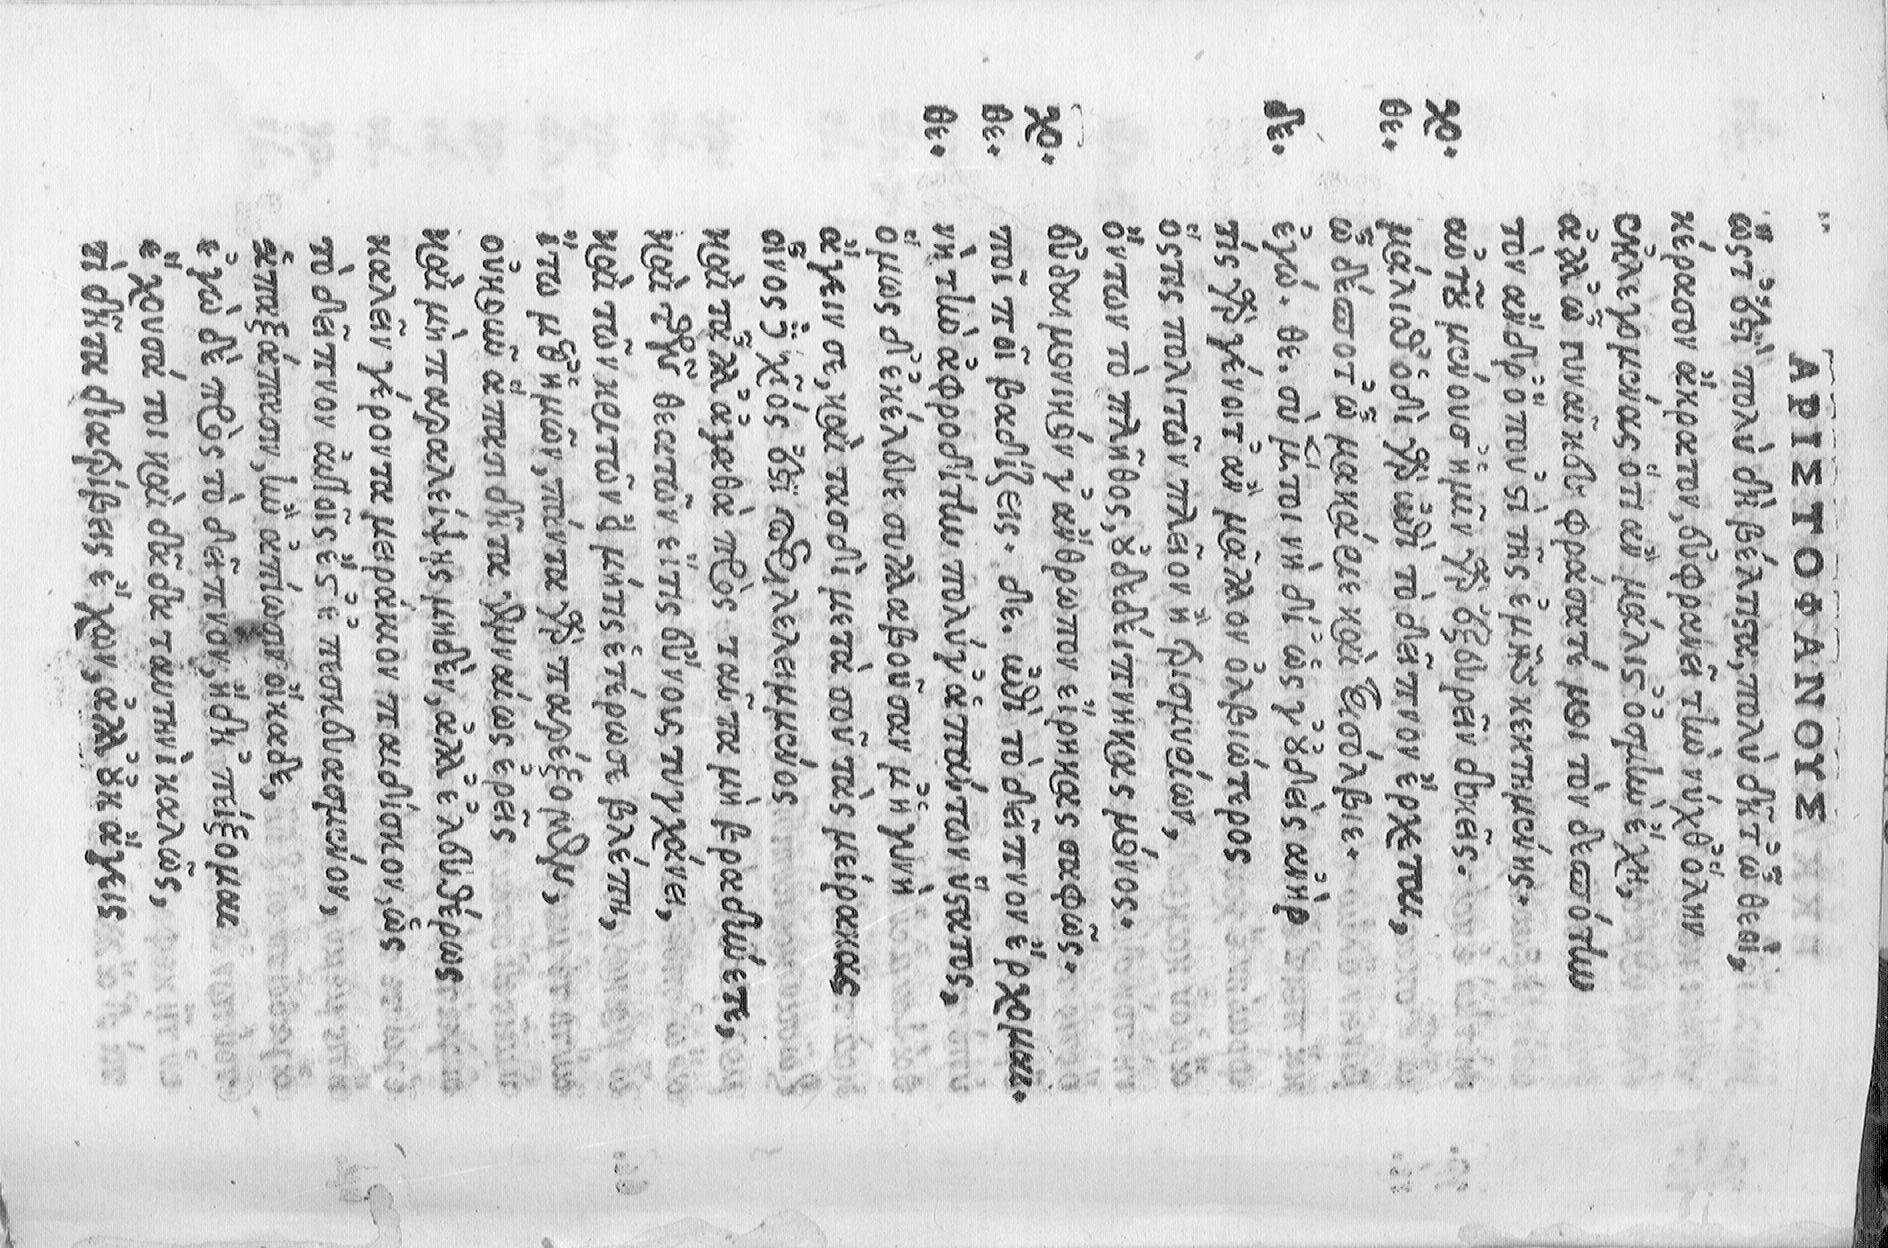 ΑΡΙΣΤΟΦΑΝΟΥΣ
ὥστ' ἐστὶ πολὺ δὴ βέλτιστα, πολὺ δῆτ' ὦ θεοὶ,
κέρασον ἄκρατον, εὐφρανεῖ τὴν νύχθ' ὅλην
ἐκλεγομένας ὅτι ἂν μάλιστ' ὀσμὴν ἔχῃ,
ἀλλ' ὦ γυναῖκες φράσατέ μοι τὸν δεσπότην
τὸν ἄνδρ' ὅπου 'στὶ τῆς ἐμῆς κεκτημένης.
χο. αὐτοῦ μένουσ' ἡμῖν γὰρ ἐξευρεῖν δοκεῖς.
θε. μάλισθ' ὁδὶ γὰρ ἐπὶ τὸ δεῖπνον ἔρχεται,
ὦ δέσποτ' ὦ μακάριε καὶ τρισόλβιε.
δε. ἐγώ. θε. σὺ μέντοι νὴ δί' ὥς γ' οὐδεὶς ἀνὴρ
τίς γὰρ γένοιτ' ἂν μᾶλλον ὀλβιώτερος
ὅστις πολιτῶν πλεῖον ἢ τρισμυρίων,
ὄντων τὸ πλῆθος, οὐ δεδείπνηκας μόνος.
χο. εὐδαιμονικόν γ' ἄνθρωπον εἴρηκας σαφῶς.
θε. ποῖ ποῖ βαδίζεις. δε. ἐπὶ τὸ δεῖπνον ἔρχομαι.
θε. νὴ τὴν ἀφροδίτην πολύ γ' ἁπάντων ὕστατος,
ὅμως δ' ἐκέλευε συλλαβοῦσαν μ' ἡ γυνὴ
ἄγειν σε, καὶ τασδὶ μετὰ σοῦ τὰς μείρακας
οἶνος δὲ χῖός ἐστι περιλελειμμένος
καὶ τἄλλ' ἀγαθὰ πρὸς ταῦτα μὴ βραδύνετε,
καὶ τῶν θεατῶν εἴτις εὔνους τυγχάνει,
καὶ τῶν κριτῶν εἰ μήτις ἑτέρωσε βλέπει,
ἴτω μεθ' ἡμῶν, πάντα γὰρ παρέξομεν,
οὐκοῦν ἅπασι δῆτα γενναίως ἐρεῖς
καὶ μὴ παραλείψῃς μηδέν, ἀλλ' ἐλευθέρως
καλεῖν γέροντα μειράκιον παιδίσκον, ὡς
τὸ δεῖπνον αὐτοῖς ἐστ' ἐπεσκευασμένον,
ἁπαξάπασιν, ἢν ἀπίωσιν οἴκαδε,
ἐγὼ δὲ πρὸς τὸ δεῖπνον, ἤδη 'πείξομαι
ἔχουσά τοι καὶ δᾷδα ταυτηνὶ καλῶς,
τί δῆτα διατρίβεις ἔχων, ἀλλ' οὐκ ἄγεις